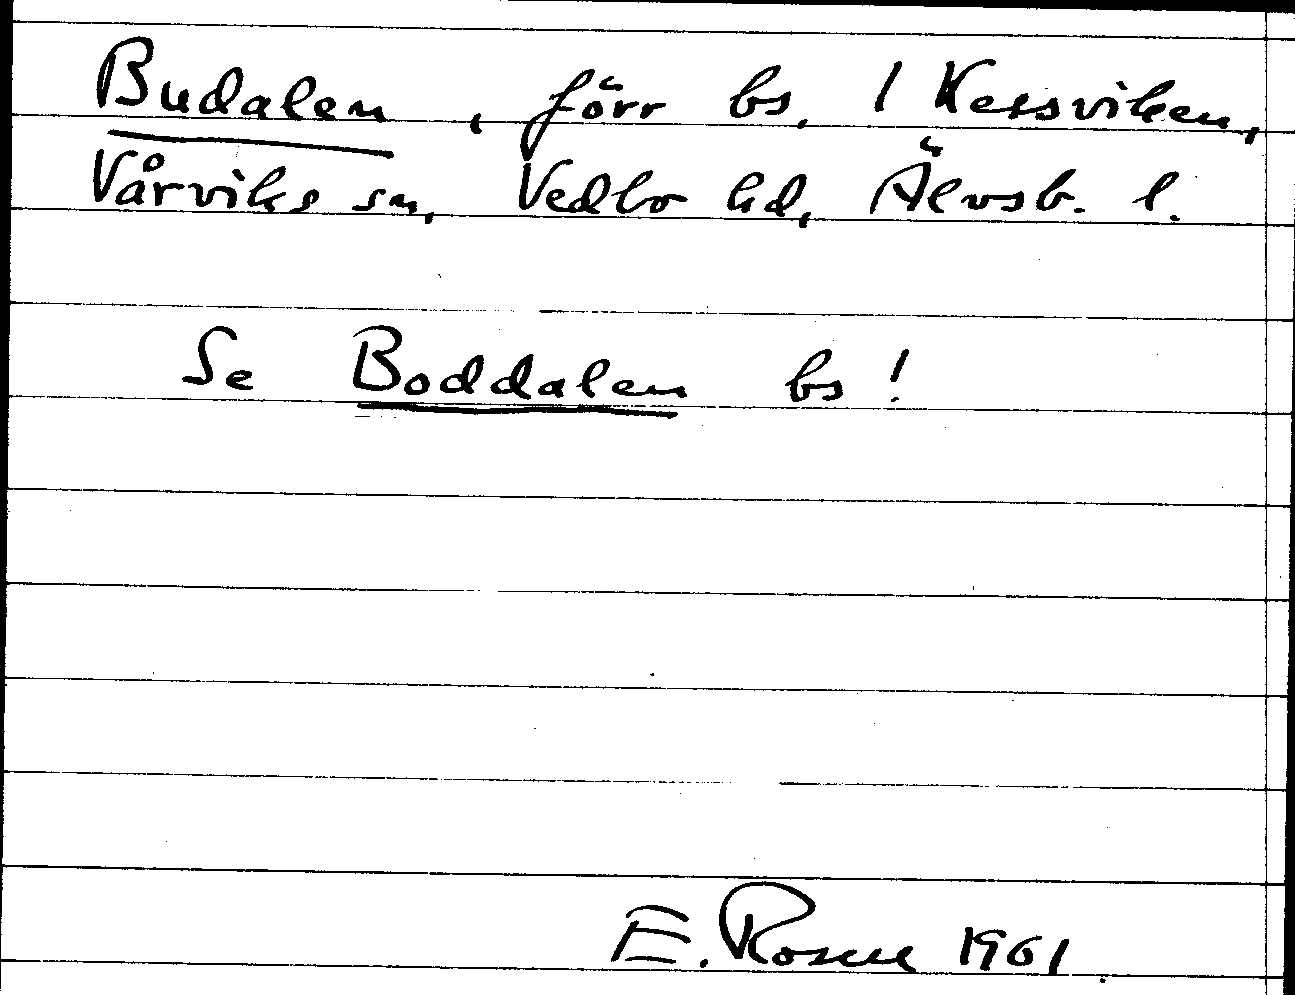 Budalen, förr bs. / Kessviken,
Vårviks sn, Vedbo hd, Älvsb. l.
Se Boddalen bs!
E. Rosell 1961